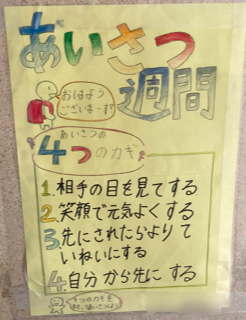 あいさつ
週間
おはよう
ございまーす!
あいさつの
4つのカギ
1.相手の目を見てする
2.笑顔で元気よくする
3.先にされたらよりて
いねいにする
4.自分から先にする
4つのカギを